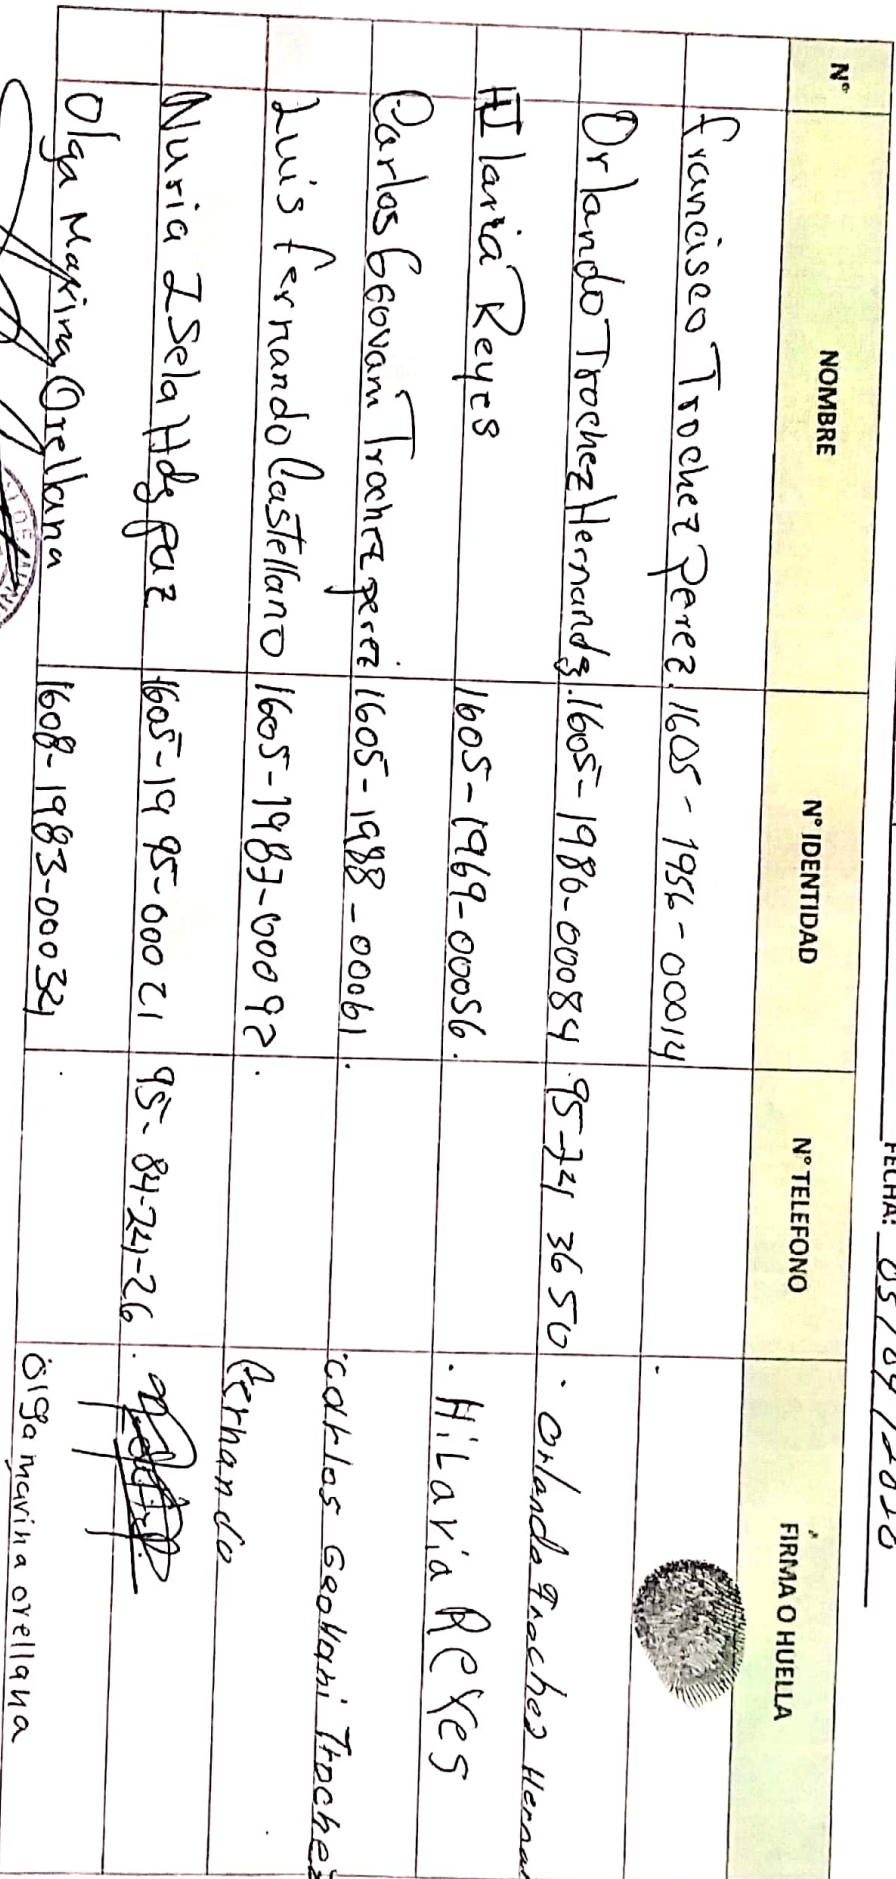 FECHA: 05/04/2020
N° NOMBRE N° IDENTIDAD N° TELEFONO FIRMA O HUELLA
Francisco Trochez Perez. 1605-1956-00014
Orlando Trochez Hernandz. 1605-1980-00084 95-74 3650 Orlando Trochez Hernan
Ilaria Reyes 1605-1969-00056. HiLaria Reyes
Carlos Geovani Trochez perez 1605-1988-00061 carlos Geovani Trochez
Luis Fernando Castellano 1605-1983-00092 Fernando
Nuria Isela Hdz paz 1605-1995-00021 95-84-24-26
Olga Marina Orellana 1608-1983-00034 olga marina orellana